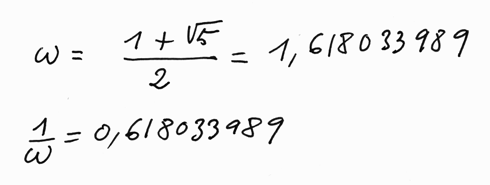 ω = (1 + √5)/2 = 1,618033989
1/ω = 0,618033989